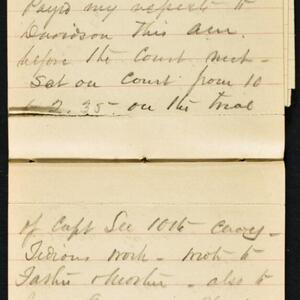 Pay'd my respects to
Davidson this am.
before the Court met -
Sat on Court from 10
to 2.35. on the trial
of Capt Lee 10th Cavy -
Tedious work - wrote to
Father & Mother - also to